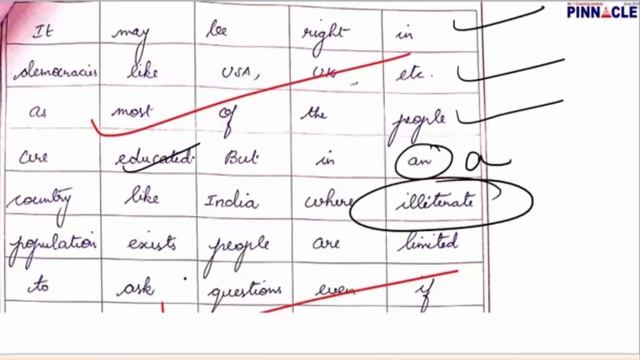 PINNACLE
It may be right in
democracies like USA, UK, etc.
as most of the people
are educated. But in an a
country like India where illiterate
population exists people are limited
to ask questions even if